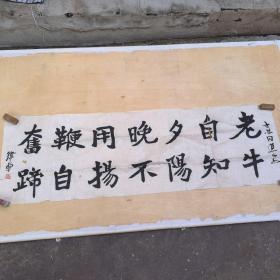 老牛
自知
夕陽
晚不
用揚
鞭自
奮蹄